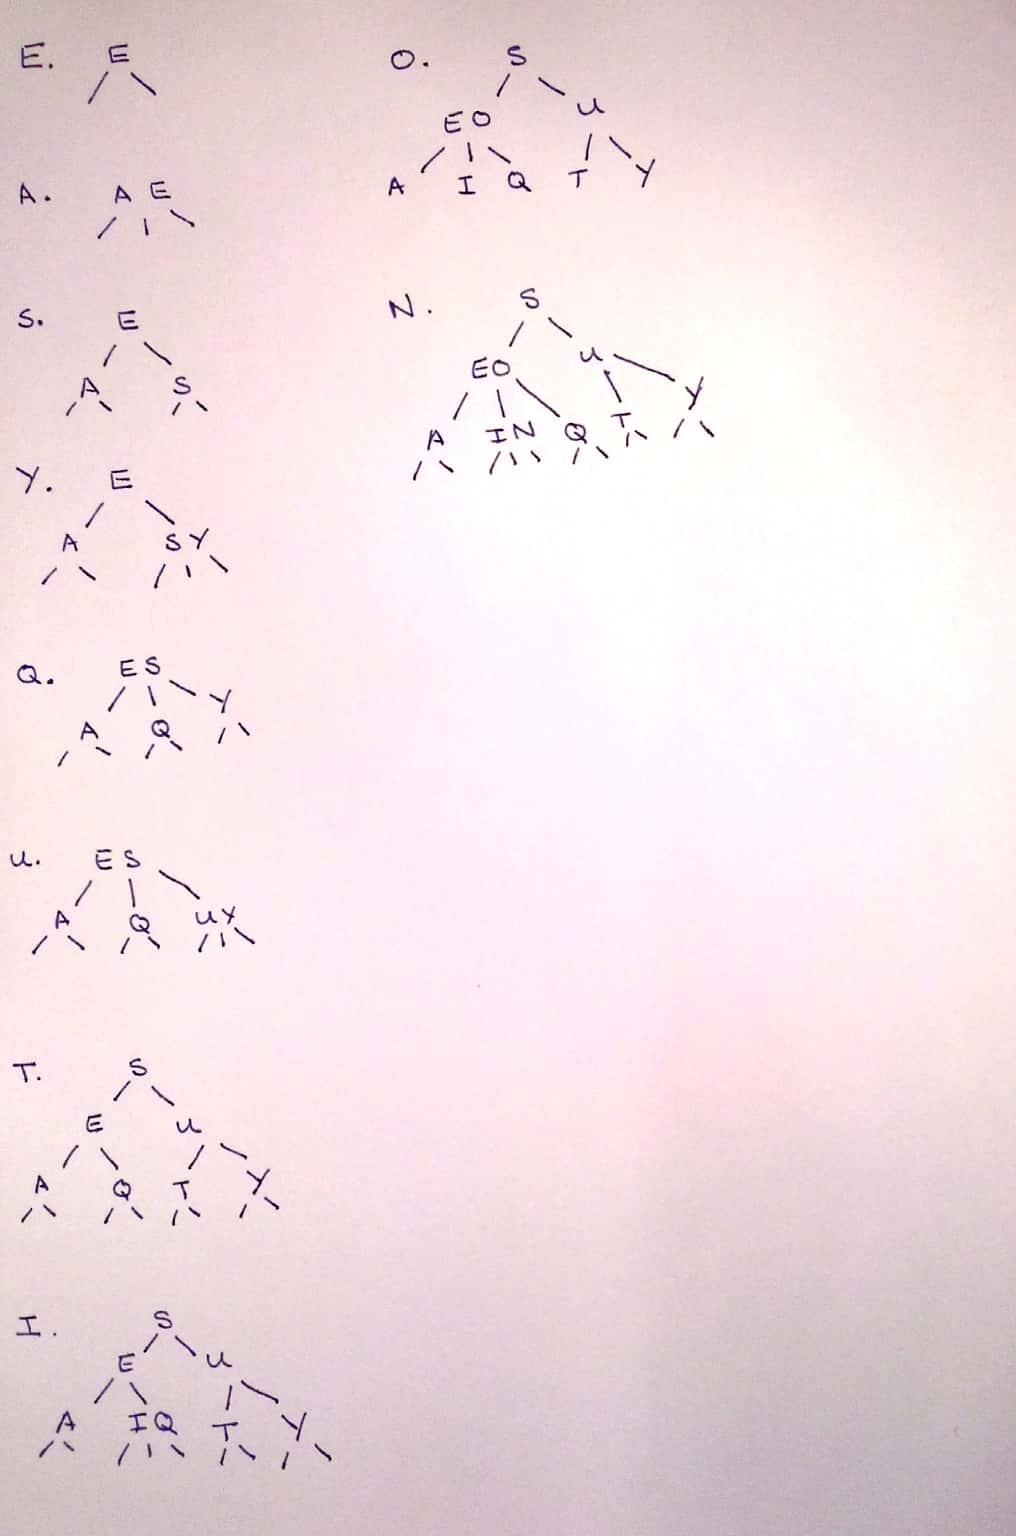 E. E
A. A E
S. E
A S
Y. E
A S Y
Q. E S
Y
A Q
U. E S
A Q U Y
T. S
E U
A Q T Y
I. S
E U
A I Q T Y
O. S
U
E O
A I Q T Y
N. S
U
E O
Y
A I N Q T